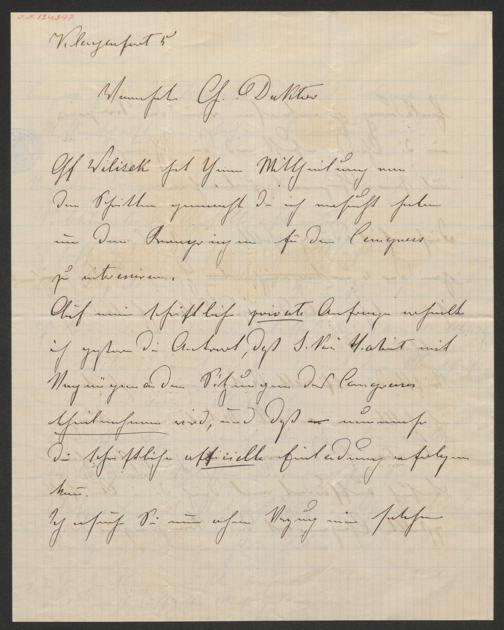 Klagenfurt 5
H. Doktor
Wilisek hat Ihnen Mittheilung von
den Schritten gemacht die ich versucht habe
um den Kronprinzen für den Congress
zu interessiren.
Auf meine schriftliche private Anfrage erhielt
ich gestern die Antwort, daß S. Kai. Hoheit mit
Vergnügen an den Sitzungen des Congresses
theilnehmen wird, und daß nunmehr
die schriftliche officielle Einladung erfolgen
kann.
Ich ersuche Sie nun ohne Verzug eine solche